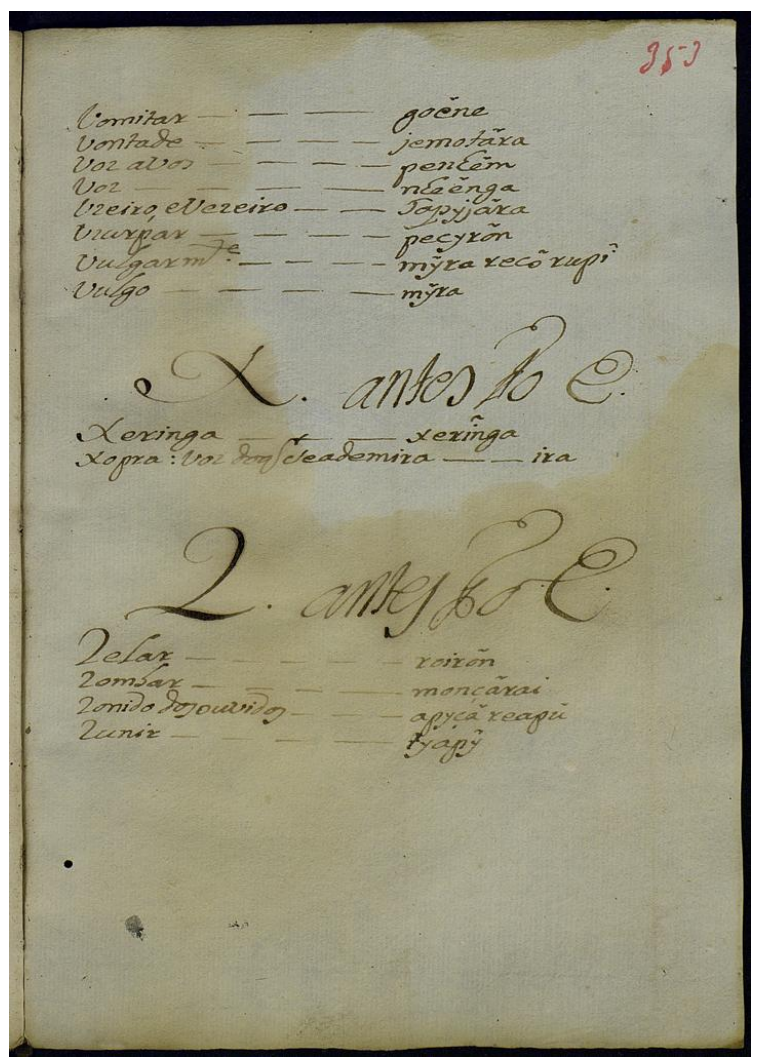 353
Vomitar — — — goẽne
Vontade — — — jemotãra
Voz a vos — — — penẽẽm
Voz — — — nẽẽnga
Vzeiro, e Vezeiro — — Tapyjára
Vzurpar — — — pecyrõn
Vulgarm.te — — — mỹra recõ rupĩ
Vulgo — — — mỹra
X. antes do E.
Xeringa — — — xerĩnga
Xopra: voz do q̃ se admira — — ira
Z. antes do E.
Zelar — — — — roirõn
Zombar — — — moncãrai
Zonido dos ouvidos — — — apyçã reapũ
Zunir — — — — tyapỹ